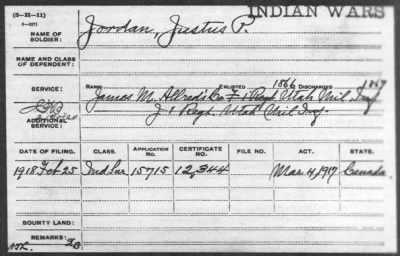 (3-II-11)
INDIAN WARS
NAME OF SOLDIER: Jordan, Justus P.
NAME AND CLASS OF DEPENDENT:
SERVICE: RANK ENLISTED 1866 DISCHARGED 1867
James M. Allred's Co F 1 Regt Utah Mil Inf
ADDITIONAL SERVICE: J 1 Regt. Utah Mil Inf
DATE OF FILING. CLASS. APPLICATION No. CERTIFICATE No. FILE NO. ACT. STATE.
1918 Feb 25 Ind Sur 15715 12,344 Mar 4, 1917 Canada
BOUNTY LAND:
REMARKS: